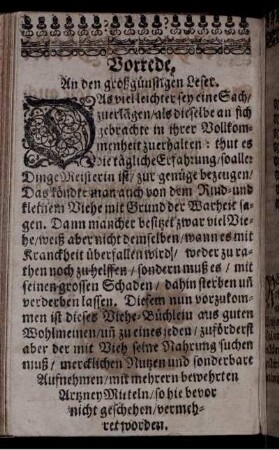 Vorrede,
An den großgünstigen Leser.
DAs viel leichter sey eine Sach/
zuerlägen/als dieselbe an sich
gebrachte in ihrer Vollkom-
menheit zuerhalten: thut es
die tägliche Erfahrung/so aller
Dinge Meisterin ist/zur genüge bezeugen/
Das köndte man auch von dem Rind-und
kleinem Viehe mit Grund der Warheit sa-
gen. Dann mancher besitzet zwar viel Vie-
he/weiß aber nicht demselben/wann es mit
Kranckheit überfallen wird/ weder zu ra-
then noch zu helffen/sondern muß es/mit
seinen grossen Schaden/dahin sterben uñ
verderben lassen. Diesem nun vorzukom-
men ist dieses Viehe-Büchlein aus guten
Wohlmeinen/uñ zu eines jeden/zuförderst
aber der mit Vieh seine Nahrung suchen
muß/mercklichen Nutzen und sonderbare
Aufnehmen/mit mehrern bewehrten
Artzney Mitteln/so hie bevor
nicht geschehen/vermeh-
ret worden.